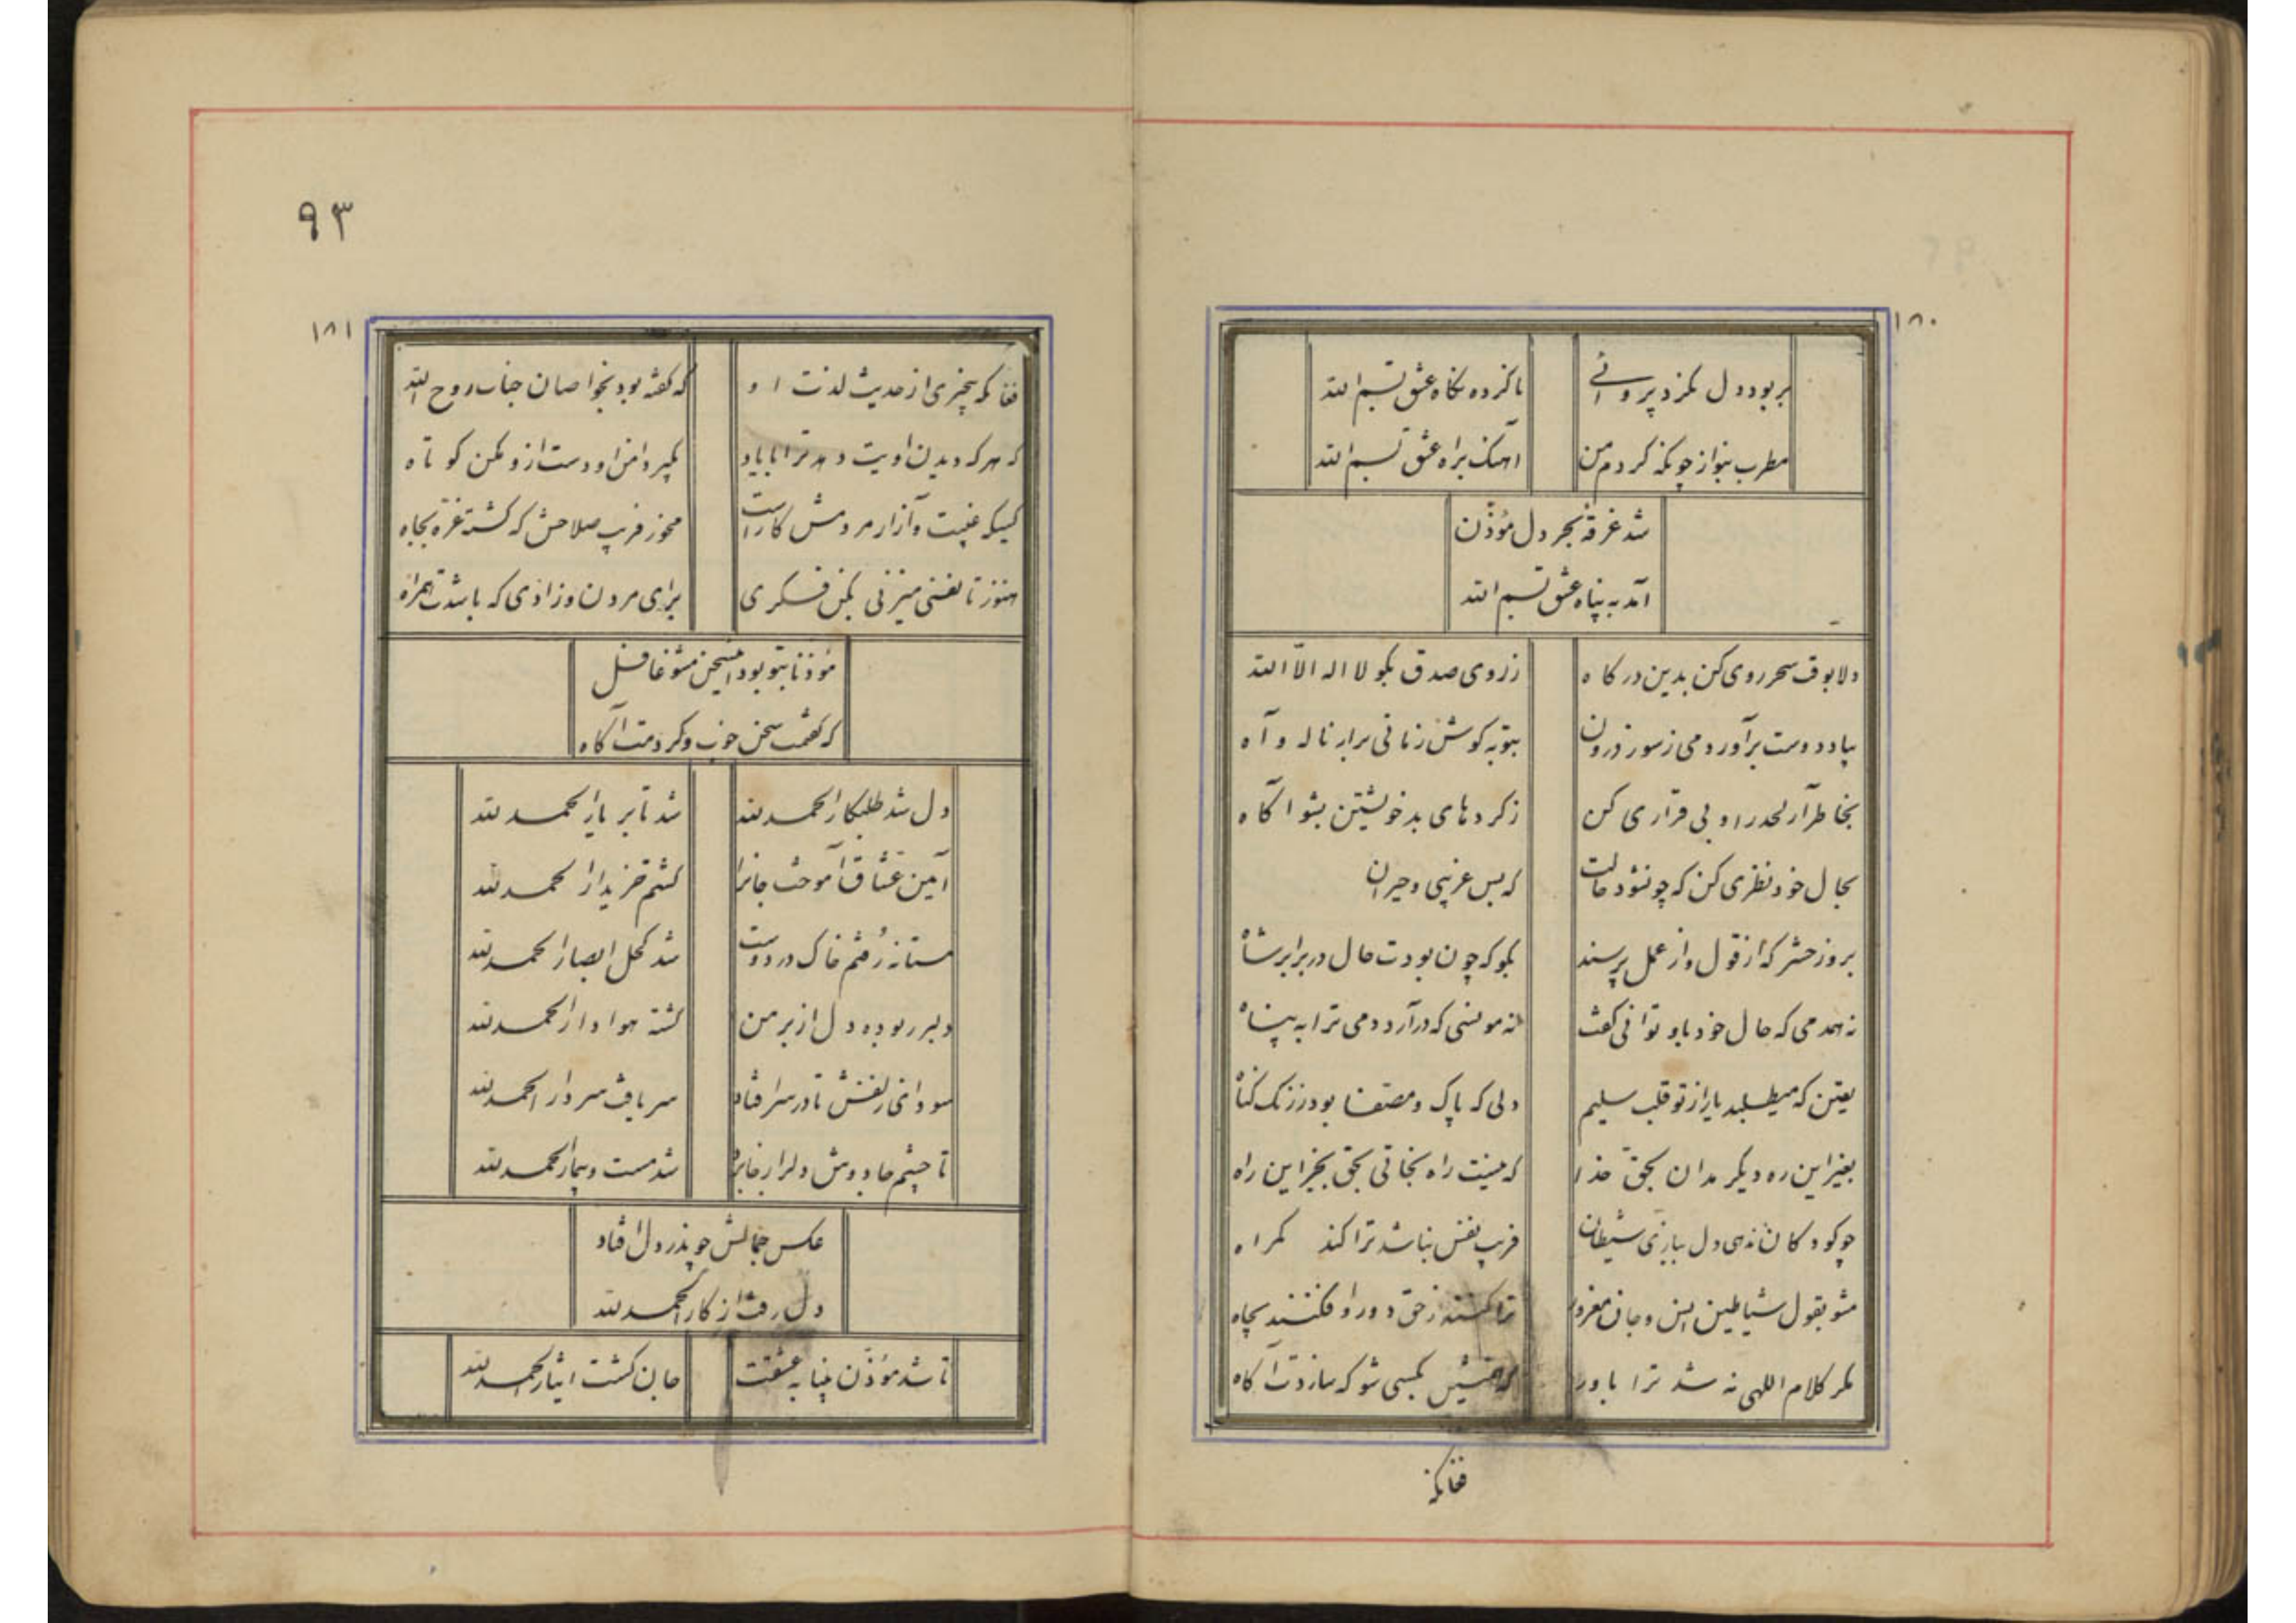 ۱۸۰
بربود دل نکرد پروائی
تا کرده نگاه عشق بسم الله
مطرب بنواز چونکه کردم من
آهنک براه عشق بسم الله
شد غرقه بحر دل مؤذن
آمد به پناه عشق بسم الله
دلا بوقت سحر روی کن بدین درکاه
ز روی صدق بکو لا اله الا الله
بیاد دوست برآور دمی ز سوز درون
بتوبه کوش زمانی برار ناله و آه
بخاطر آر لحد را و بی قراری کن
ز کردهای بد خویشتن بشو آکاه
بحال خود نظری کن که چون شود حالت
که بس غریبی و حیران
بروز حشر که از قول و از عمل پرسند
بکو که چون بودت حال در برابر شاه
نه همدمی که حال خود باو توانی کفت
نه مونسی که درآرد دمی ترا به پناه
یقین که میطلبد یار از تو قلب سلیم
دلی که پاک و مصفا بود ز زنک کناه
بغیر این ره دیکر مدان بحق خدا
که نیست راه نجاتی بحق بجز این راه
چو کودکان ندهی دل ببازی شیطان
فریب نفس نباشد ترا کند کمراه
مشو بقول شیاطین انس و جان مغرور
ترا کنند ز حق دور و افکنند بچاه
مکر کلام اللهی نه شد ترا باور
که همنشین بکسی شو که سازدت آکاه
فغانکه
۹۳
۱۸۱
فغانکه بیخبری از حدیث لذت او
که کفته بود بخواصان جناب روح الله
که هر که دیدن اویت دهد ترا با یاد
بکیر دامن او دست ازو مکن کوتاه
کسیکه غیبت و آزار مردمش کار است
مخور فریب صلاحش که کشته غره بجاه
هنوز تا نفسی میزنی بکن فکری
برای مردن و زادی که باشدت همراه
مؤذنا بتو بود این سخن مشو غافل
که کفتمت سخن خوب و کردمت آکاه
دل شد طلبکار الحمد لله
شد تا بر یار الحمد لله
آیین عشاق آموخت جانرا
کشتم خریدار الحمد لله
مستانه رفتم خاک در دوست
شد کحل ابصار الحمد لله
دلبر ربوده دل از بر من
کشته هوادار الحمد لله
سودای زلفش تا در سر افتاد
سر یافت سردار الحمد لله
تا چشم جادوش دلرا ز جا برد
شد مست و بیمار الحمد لله
عکس جمالش چو بذر دل افتاد
دل رفت از کار الحمد لله
تا شد مؤذن بیتاب عشقت
جان کشت ایثار الحمد لله